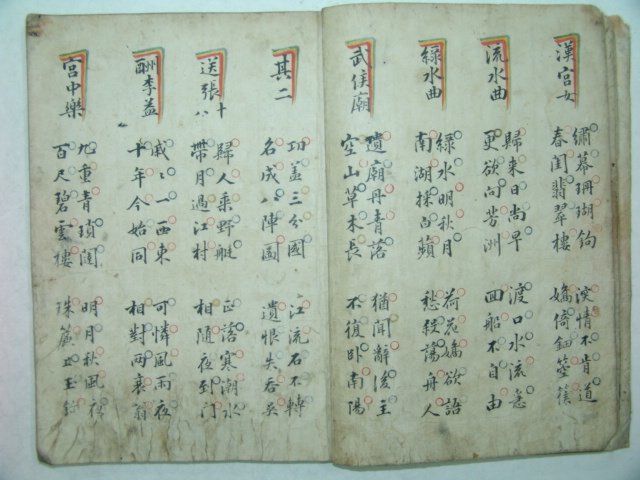 漢宮女
繡幕珊瑚鉤
春閨翡翠樓
深情不肯道
嬌倚鈿箜篌
流水曲
歸来日尚早
更欲向芳洲
渡口水流急
囬船不自由
綠水曲
綠水明秋月
南湖採白蘋
荷花嬌欲語
愁殺蕩舟人
武侯廟
遺廟丹青落
空山草木長
猶聞辭後主
不復卧南陽
其二
功盖三分國
名成八陣圖
江流石不轉
遺恨失吞吳
送張十八
歸人乘野艇
帶月過江村
正落寒潮水
相隨夜到門
酬李益
戚〻一西東
十年今始同
可憐風雨夜
相對兩衰翁
宮中樂
九重青瑣闥
百尺碧雲樓
明月秋風夜
珠簾上玉鉤